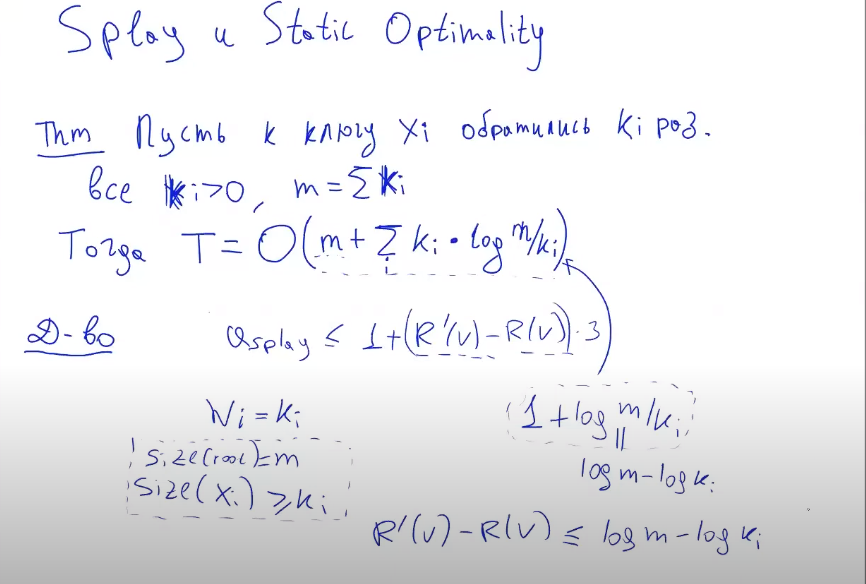 Splay и Static Optimality
Thm Пусть к ключу xi обратились ki раз.
все ki>0, m = Σki
Тогда T = O(m + Σ ki · log m/ki)
i
Д-во asplay ≤ 1+(R'(v)-R(v))·3
Wi = ki
1 + log m/ki
size(root)=m
||
size(xi) ≥ ki
log m - log ki
R'(v) - R(v) ≤ log m - log ki